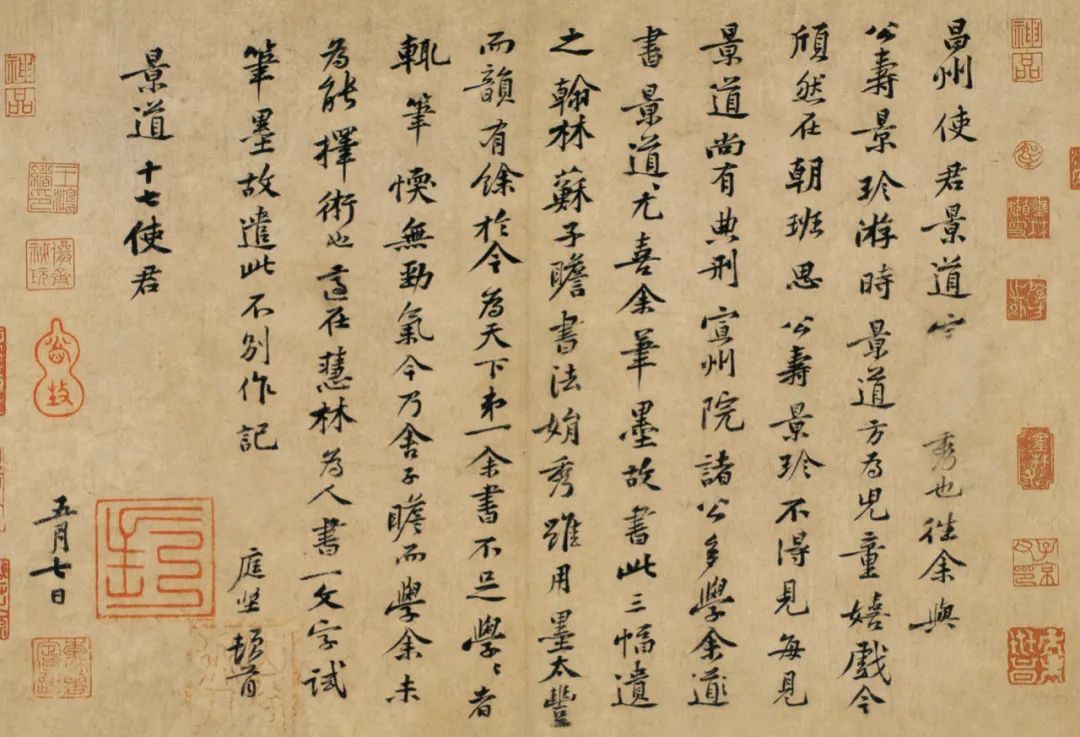 昌州使君景道宀 秀也往余與
公壽景珍游時景道方為兒童嬉戲今
頎然在朝班思公壽景珍不得見每見
景道尚有典刑宣州院諸公多學余道
書景道〻尤喜余筆墨故書此三幅遺
之翰林蘇子瞻書法娟秀雖用墨太豐
而韻有餘於今為天下第一余書不足學〻者
輒筆愞無勁氣今乃舍子瞻而學余未
為能擇術也適在慧林為人書一文字試
筆墨故遣此不別作記
庭堅頓首
景道十七使君
五月七日
神品
神品
子京父印